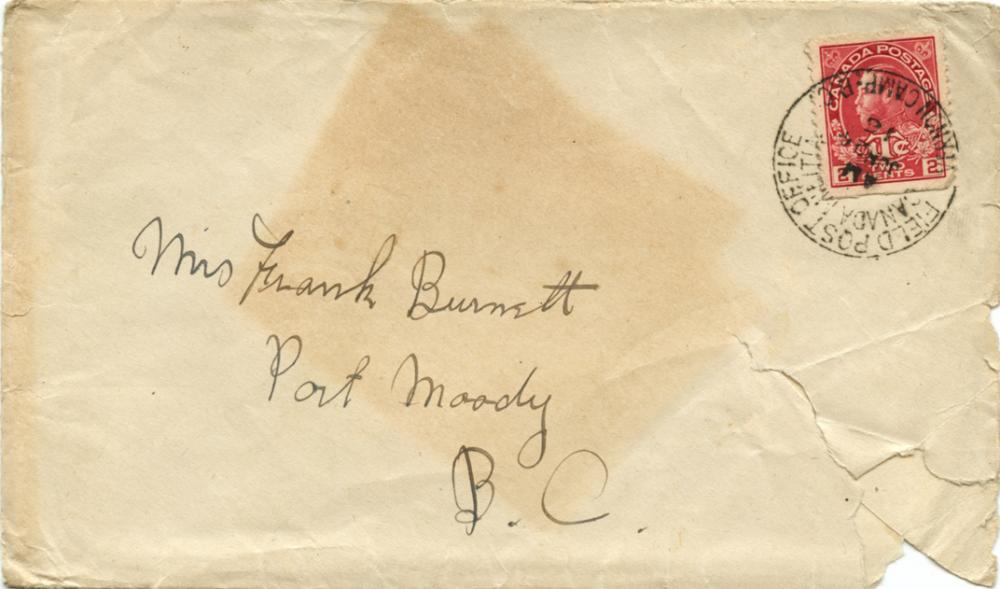 CANADA POSTAGE
1c
2 CENTS 2
FIELD POST OFFICE
CANADA MILITIA
CAMP B.C.
AM
15
Mrs Frank Burnett
Port Moody
B. C.